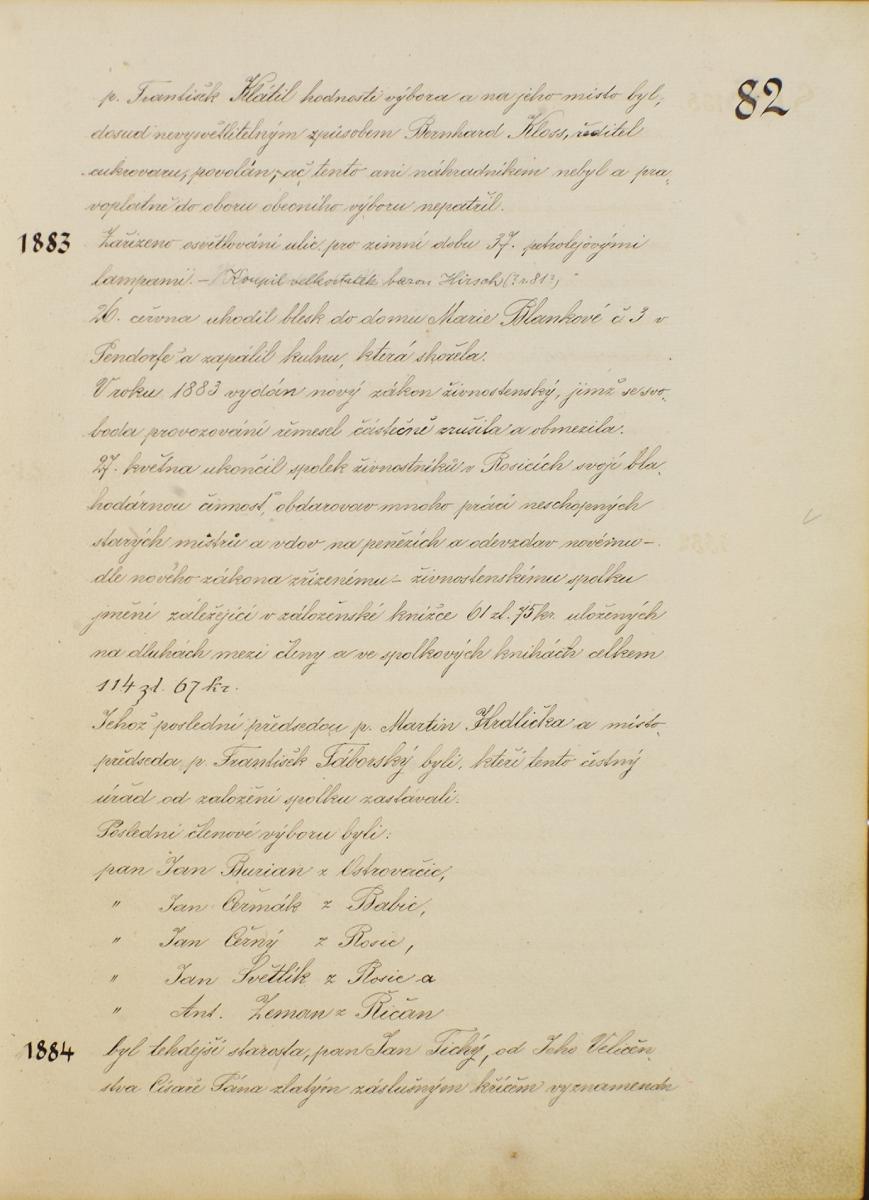 82
p. František Klátil hodnosti výbora a na jeho místo byl,
dosud nevysvětlitelným způsobem Bernhard Kloss, ředitel
cukrovaru, povolán, ač tento ani náhradníkem nebyl a pra-
voplatně do oboru obecního výboru nepatřil.
1883 Zařízeno osvětlování ulic pro zimní dobu 37. petrolejovými
lampami. – Koupil velkostatek baron Hirsch (? r. 81?)
26. června uhodil blesk do domu Marie Blankové č 3 v
Pendorfě a zapálil kulnu, která shořela.
V roku 1883 vydán nový zákon živnostenský, jimž se svo-
boda provozování řemesel částečně zrušila a obmezila.
27. května ukončil spolek živnostníků v Rosicích svojí bla-
hodárnou činnost, obdarovav mnoho prácí neschopných
starých mistrů a vdov na penězích a odevzdav novému –
dle nového zákona zřízenému – živnostenskému spolku
jmění záležející v záloženské knížce 61 zl. 75 kr. uložených
na dluhách mezi členy a ve spolkových knihách celkem
114 zl. 67 kr.
Jehož poslední předsedou p. Martin Hrdlička a místo-
předseda p. František Táborský byli, kteří tento čestný
úřad od založení spolku zastávali.
Poslední členové výboru byli:
pan Jan Burian z Ostrovačic,
" Jan Čermák z Babic,
" Jan Černý z Rosic,
" Jan Světlík z Rosic a
" Ant. Zeman z Říčan
1884 byl tehdejší starosta, pan Jan Tichý, od Jeho Veličen-
stva Císaře Pána zlatým záslušným křížem vyznamenán